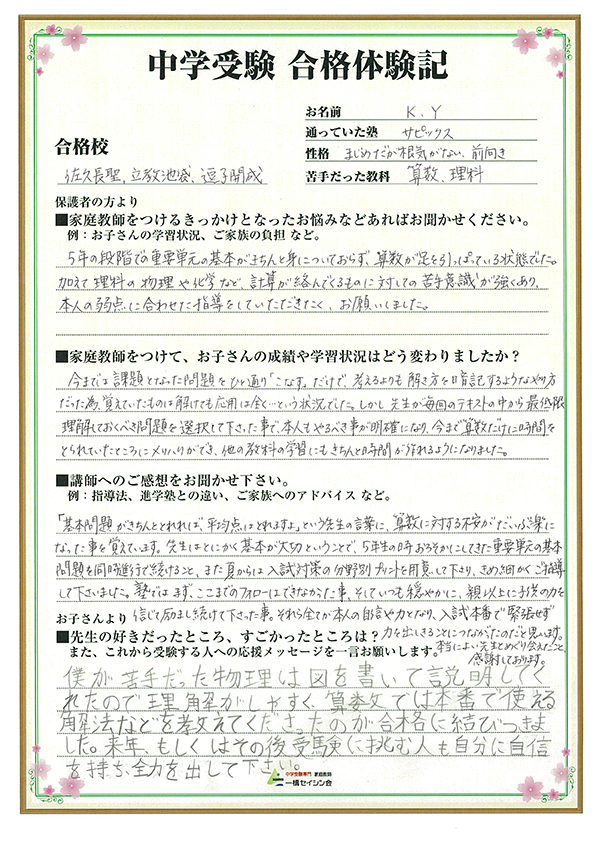 中学受験 合格体験記
お名前 K.Y
通っていた塾 サピックス
性格 まじめだが根気がない、前向き
苦手だった教科 算数、理科
合格校
佐久長聖、立教池袋、逗子開成
保護者の方より
■家庭教師をつけるきっかけとなったお悩みなどあればお聞かせください。
例：お子さんの学習状況、ご家族の負担 など。
5年の段階での重要単元の基本がきちんと身についておらず、算数が足を引っぱっている状態でした。
加えて理科の物理や化学など、計算が絡んでくるものに対しての苦手意識が強くあり、
本人の弱点に合わせた指導をしていただきたく、お願いしました。
■家庭教師をつけて、お子さんの成績や学習状況はどう変わりましたか？
今までは課題となった問題をひと通り「こなす」だけで、考えるよりも解き方を暗記するようなやり方
だった為、覚えていたものは解けても応用は全く…という状況でした。しかし先生が毎回のテキストの中から最低限
理解しておくべき問題を選択して下さった事で、本人もやるべき事が明確になり、今まで算数だけに時間を
とられていたところにメリハリができ、他の教科の学習にもきちんと時間が作れるようになりました。
■講師へのご感想をお聞かせ下さい。
例：指導法、進学塾との違い、ご家族へのアドバイス など。
「基本問題がきちんととれれば、平均点はとれますよ」という先生の言葉に、算数に対する不安がだいぶ楽に
なった事を覚えています。先生はとにかく基本が大切ということで、5年生の時おろそかにしてきた重要単元の基本
問題を同時進行で続けること、また夏からは入試対策の分野別プリントを用意して下さり、きめ細かくご指導
して下さいました。塾ではまず、ここまでのフォローはできなかった事、そしていつも穏やかに、親以上に子供の力を
信じて励まし続けて下さった事。それら全てが本人の自信や力となり、入試本番で緊張せず
力を出しきることにつながったのだと思います。
本当によい先生とめぐり会えたこと、
感謝しております。
お子さんより
■先生の好きだったところ、すごかったところは？
また、これから受験する人への応援メッセージを一言お願いします。
僕が苦手だった物理は図を書いて説明してく
れたので理解がしやすく、算数では本番で使える
解法などを教えてくださったのが合格に結びつきま
した。来年、もしくはその後受験に挑む人も自分に自信
を持ち、全力を出して下さい。
中学受験専門 家庭教師
一橋セイシン会